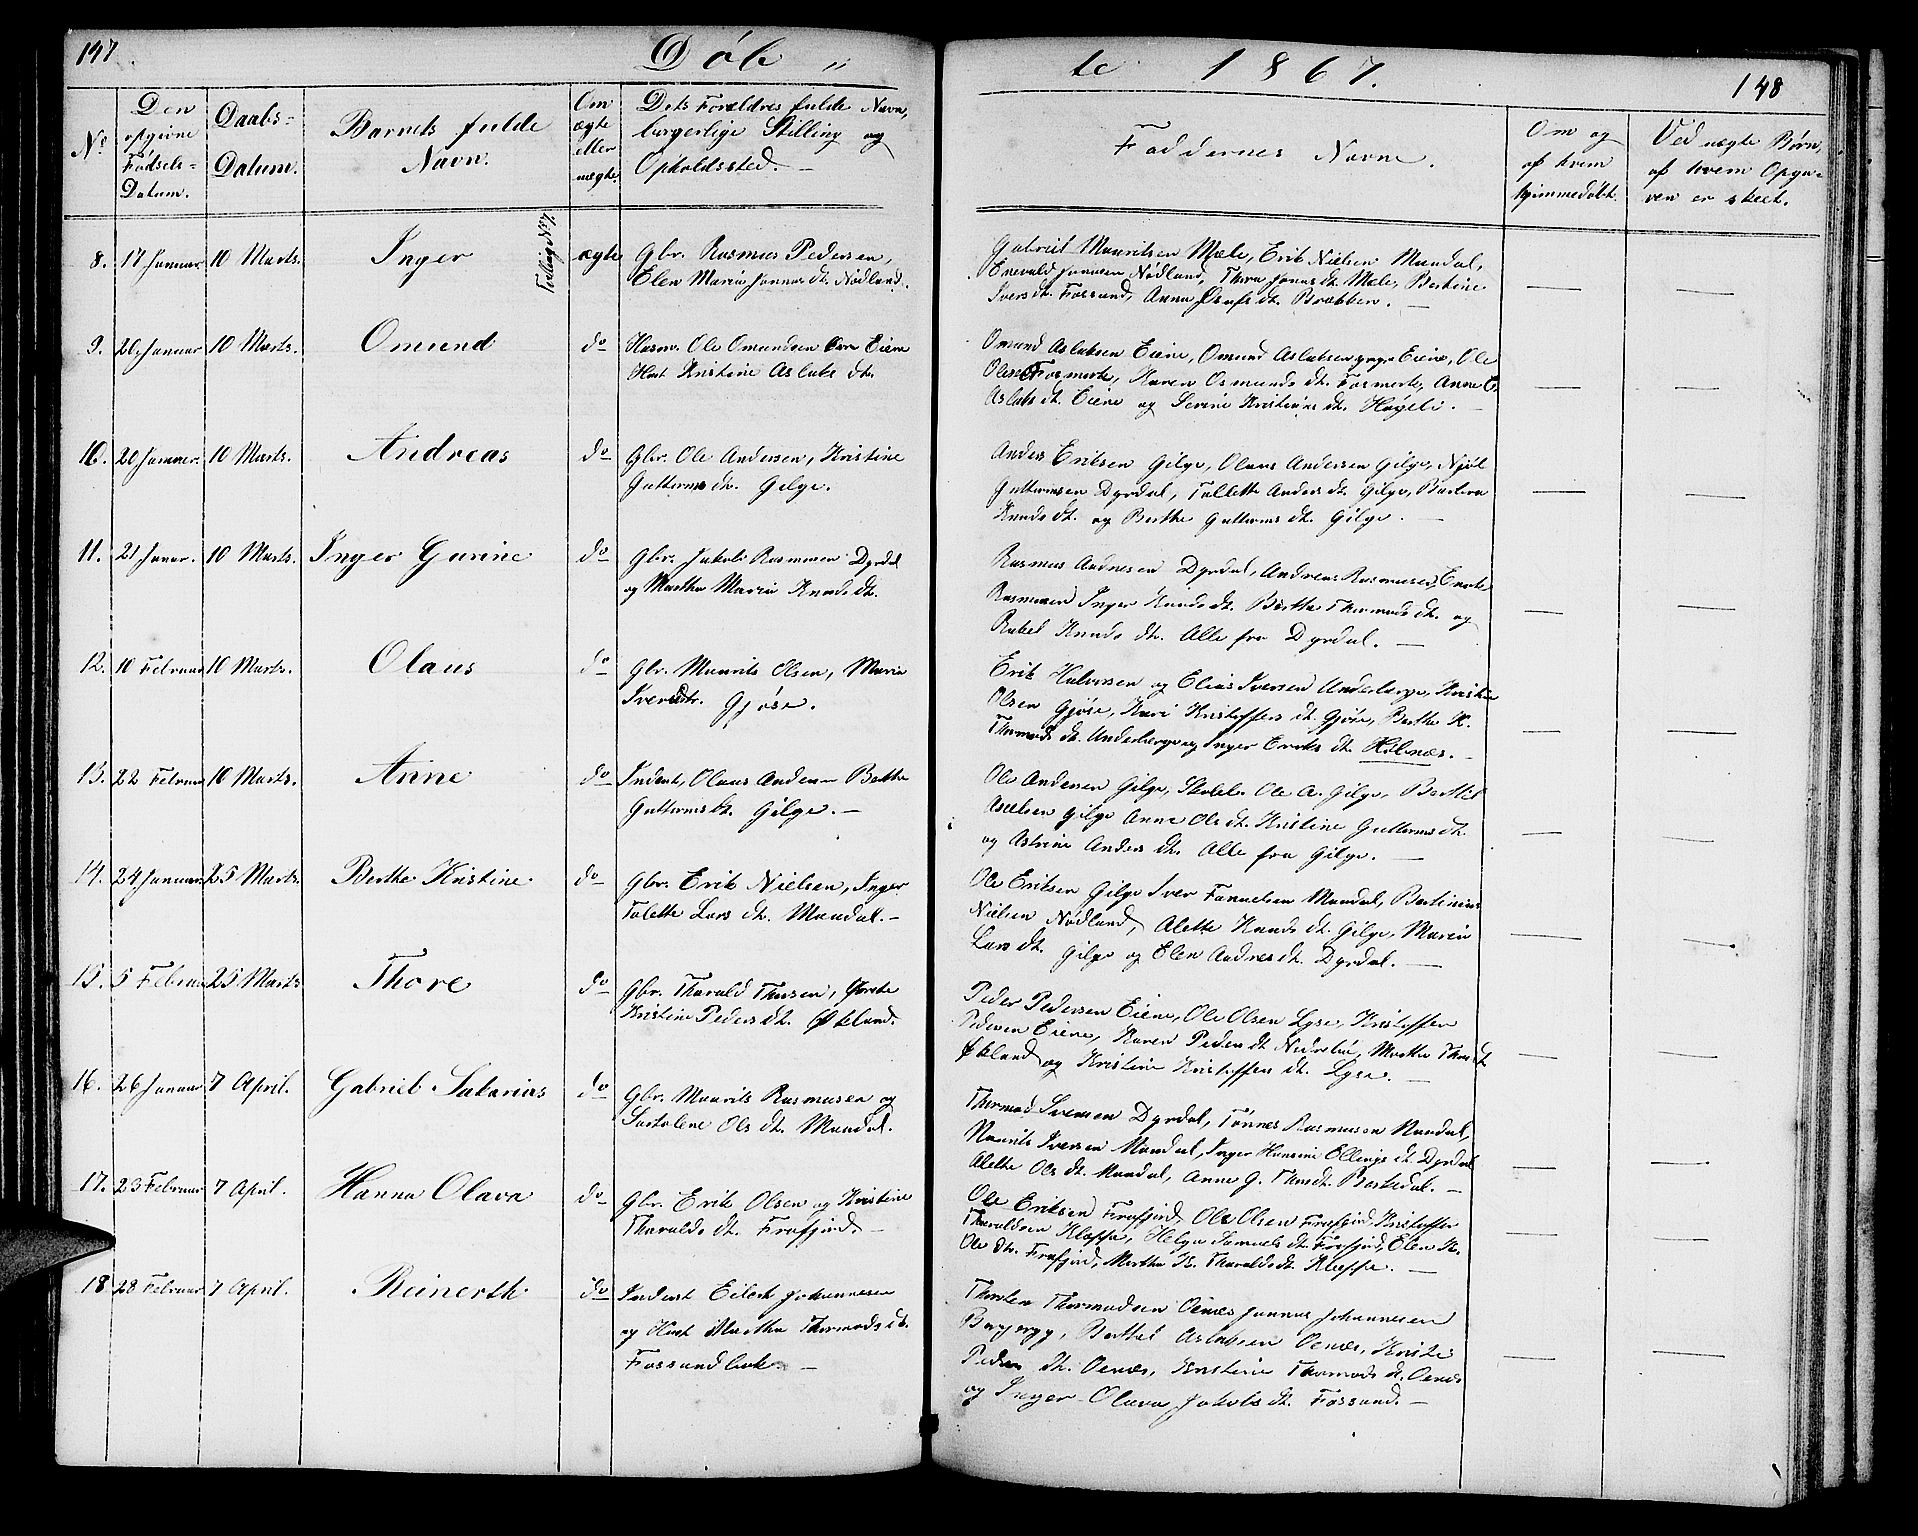 147 Döb " te 1867. 148
No
Den opgivne Födsels-Datum.
Daabs-Datum.
Barnets fulde Navn.
Om ægte eller uægte.
Dets Foreldres fulde Navn, borgerlige Stilling og Opholdssted. —
Faddernes Navne.
Om og af hvem hjemmedöbt.
Ved uægte Börn, af hvem Opgaven er skeet.
8. 17 Januar 10 Marts. Inger Tvilling No 7. ægte
Gbr. Rasmus Pedersen,
Elen Maria Jonnas dt. Nödland.
Gabriel Mauritsen Mæle, Erik Nielsen Mundal,
Enevald Jonnasen Nödland, Thora Jonas dt. Mæle, Bertine
Ivers dt. Fossand, Anna Osufs dt. Brækken. —
9. 20 Januar 10 Marts. Omund do
Husm. Ole Omundsen Eiene
Hust Kristine Aslaks dt.
Omund Aslaksen Eiene, Omund Aslaksen yngre Eiene, Ole
Olsen Fosmark, Karen Osmunds dt. Fosmark, Anne E.
Aslaks dt. Eiene og Serine Kristians dt. Högeli. —
10. 20 Januar. 10 Marts. Andreas do
Gbr. Ole Andersen, Kristine
Guttorms dt. Gilge.
Anders Eriksen Gilge, Olaus Andersen Gilge, Njöl
Guttormsen Dyrdal, Tallette Anders dt. Gilge, Barbra
Knuds dt. og Berthe Guttorms dt. Gilge. —
11. 21 Januar. 10 Marts. Inger Gurine do
Gbr. Jakob Rasmusen Dyrdal
og Martha Maria Knuds dt.
Rasmus Andresen Dyrdal, Andreas Rasmusen, Enok
Rasmusen Inger Knuds dt. Berthe Thormods dt. og
Rakel Knuds dt. Alle fra Dyrdal. —
12. 10 Februar 10 Marts. Olaus do
Gbr. Maurits Olsen, Maria
Iversdtr. Gjöse.
Erik Halvorsen og Elias Iversen Underberge, Kristen
Olsen Gjöse, Kari Kristoffers dt. Gjöse, Berthe K.
Thormods dt. Underberge og Inger Eriks dt. Helenæs. —
13. 22 Februar 10 Marts. Anne do
Inderst, Olaus Andersen Berthe
Guttorms dt. Gilge. —
Ole Andersen Gilge, Skolel. Ole A. Gilge, Berthel
Asselsen Gilge Anne Ols dt. Kristine Guttorms dt.
og Astrine Anders dt. Alle fra Gilge. —
14. 24 Januar 25 Marts. Berthe Kristine do
Gbr. Erik Nielsen, Inger
Talette Lars dt. Mundal. —
Ole Eriksen Gilge Iver Tonnelsen Mundal, Bertinius
Nielsen Nödland, Alette Knuds dt. Gilge, Maria
Lars dt. Gilge og Elen Andres dt. Dyrdal. —
15. 5 Februar 25 Marts Thore do
Gbr. Thorvald Thorsen, Grete
Kristine Peders dt. Økland.
Peder Pedersen Eiene, Ole Olsen Lyse, Kristoffer
Pedersen Eiene, Karen Peders dt Nedrebö, Marthe Thors dt
Økland og Kristine Kristoffers dt. Lyse. —
16. 26 Januar 7 April. Gabriel Sakarias do
Gbr. Maurits Rasmusen og
Ols dt. Mundal.
Thormod Svensen Dyrdal, Tönnes Rasmusen Mundal,
Maurits Iversen Mundal, Inger Hansine Ellings dt Dyrdal
Alette Ols dt. Mundal, Anne G. Thors dt. Borkedal. —
17. 23 Februar 7 April. Hanna Olava do
Gbr. Erik Olsen og Kristine
Tharalds dt. Frafjord. —
Ole Eriksen Frafjord, Ole Olsen Frafjord, Kristoffer
Tharaldsen Kleppe, Helga Samuels dt. Frafjord, Elen K.
Ole dt. Frafjord, Marthe K. Tharalds dt Kleppe. —
18 28 Februar 7 April. Reinerth do
Inderst Eilert Johannesen
og Hust Martha Thormods dt.
Fossandbak. —
Thorsten Thormodsen Oenæs Jonnas Johannesen
Bergeryg, Berthel Aslaksen Oenæs, Kriste
Peders dt. Oenæs, Kristine Thormods dt. Oenæs
og Inger Olava Jakobs dt. Fossand. —